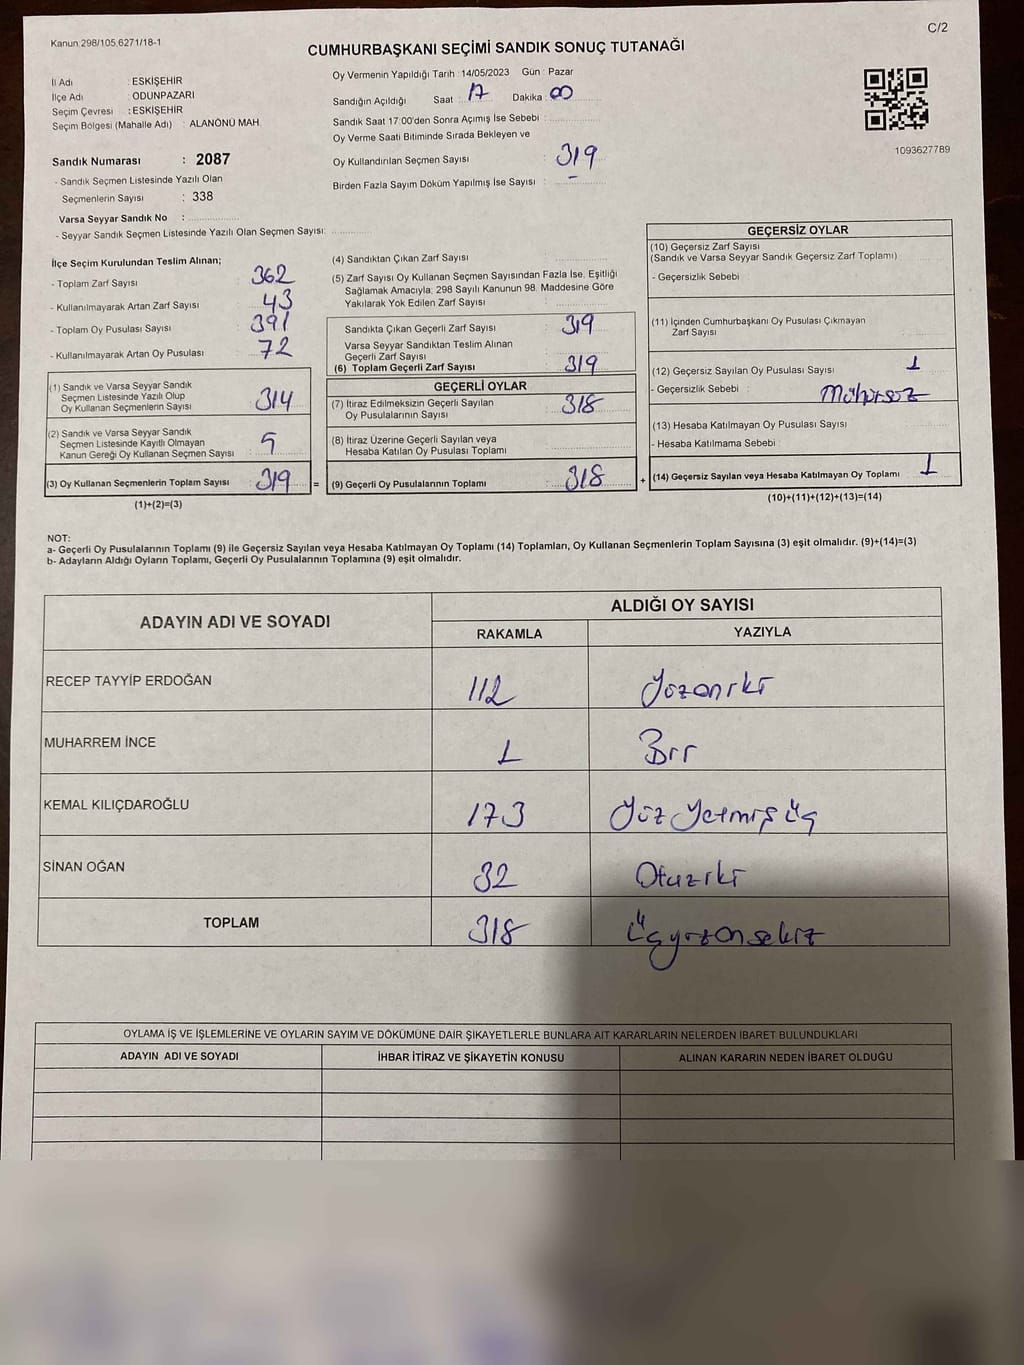 Kanun 298/105,6271/18-1
C/2
CUMHURBAŞKANI SEÇİMİ SANDIK SONUÇ TUTANAĞI
İl Adı : ESKİŞEHİR
İlçe Adı : ODUNPAZARI
Seçim Çevresi : ESKİŞEHİR
Seçim Bölgesi (Mahalle Adı) : ALANÖNÜ MAH.
Sandık Numarası : 2087
- Sandık Seçmen Listesinde Yazılı Olan
Seçmenlerin Sayısı : 338
Varsa Seyyar Sandık No :
- Seyyar Sandık Seçmen Listesinde Yazılı Olan Seçmen Sayısı:
Oy Vermenin Yapıldığı Tarih : 14/05/2023 Gün : Pazar
Sandığın Açıldığı Saat : 17 Dakika : 00
Sandık Saat 17:00'den Sonra Açımış İse Sebebi :
Oy Verme Saati Bitiminde Sırada Bekleyen ve
Oy Kullandırılan Seçmen Sayısı : 319
Birden Fazla Sayım Döküm Yapılmış İse Sayısı : -
1093627789
İlçe Seçim Kurulundan Teslim Alınan;
- Toplam Zarf Sayısı 362
- Kullanılmayarak Artan Zarf Sayısı 43
- Toplam Oy Pusulası Sayısı 391
- Kullanılmayarak Artan Oy Pusulası 72
(1) Sandık ve Varsa Seyyar Sandık
Seçmen Listesinde Yazılı Olup
Oy Kullanan Seçmenlerin Sayısı 314
(2) Sandık ve Varsa Seyyar Sandık
Seçmen Listesinde Kayıtlı Olmayan
Kanun Gereği Oy Kullanan Seçmen Sayısı 5
(3) Oy Kullanan Seçmenlerin Toplam Sayısı 319 =
(1)+(2)=(3)
(4) Sandıktan Çıkan Zarf Sayısı
(5) Zarf Sayısı Oy Kullanan Seçmen Sayısından Fazla İse, Eşitliği
Sağlamak Amacıyla; 298 Sayılı Kanunun 98. Maddesine Göre
Yakılarak Yok Edilen Zarf Sayısı
Sandıkta Çıkan Geçerli Zarf Sayısı 319
Varsa Seyyar Sandıktan Teslim Alınan
Geçerli Zarf Sayısı
(6) Toplam Geçerli Zarf Sayısı 319
GEÇERLİ OYLAR
(7) İtiraz Edilmeksizin Geçerli Sayılan
Oy Pusulalarının Sayısı 318
(8) İtiraz Üzerine Geçerli Sayılan veya
Hesaba Katılan Oy Pusulası Toplamı
(9) Geçerli Oy Pusulalarının Toplamı 318 +
GEÇERSİZ OYLAR
(10) Geçersiz Zarf Sayısı
(Sandık ve Varsa Seyyar Sandık Geçersiz Zarf Toplamı)
- Geçersizlik Sebebi
(11) İçinden Cumhurbaşkanı Oy Pusulası Çıkmayan
Zarf Sayısı
(12) Geçersiz Sayılan Oy Pusulası Sayısı 1
- Geçersizlik Sebebi : Mühürsüz
(13) Hesaba Katılmayan Oy Pusulası Sayısı
- Hesaba Katılmama Sebebi
(14) Geçersiz Sayılan veya Hesaba Katılmayan Oy Toplamı 1
(10)+(11)+(12)+(13)=(14)
NOT:
a- Geçerli Oy Pusulalarının Toplamı (9) ile Geçersiz Sayılan veya Hesaba Katılmayan Oy Toplamı (14) Toplamları, Oy Kullanan Seçmenlerin Toplam Sayısına (3) eşit olmalıdır. (9)+(14)=(3)
b- Adayların Aldığı Oyların Toplamı, Geçerli Oy Pusulalarının Toplamına (9) eşit olmalıdır.
ADAYIN ADI VE SOYADI
ALDIĞI OY SAYISI
RAKAMLA YAZIYLA
RECEP TAYYİP ERDOĞAN 112 Yüzoniki
MUHARREM İNCE 1 Bir
KEMAL KILIÇDAROĞLU 173 Yüz Yetmiş üç
SİNAN OĞAN 32 Otuziki
TOPLAM 318 Üçyüzonsekiz
OYLAMA İŞ VE İŞLEMLERİNE VE OYLARIN SAYIM VE DÖKÜMÜNE DAİR ŞİKAYETLERLE BUNLARA AİT KARARLARIN NELERDEN İBARET BULUNDUKLARI
ADAYIN ADI VE SOYADI İHBAR İTİRAZ VE ŞİKAYETİN KONUSU ALINAN KARARIN NEDEN İBARET OLDUĞU